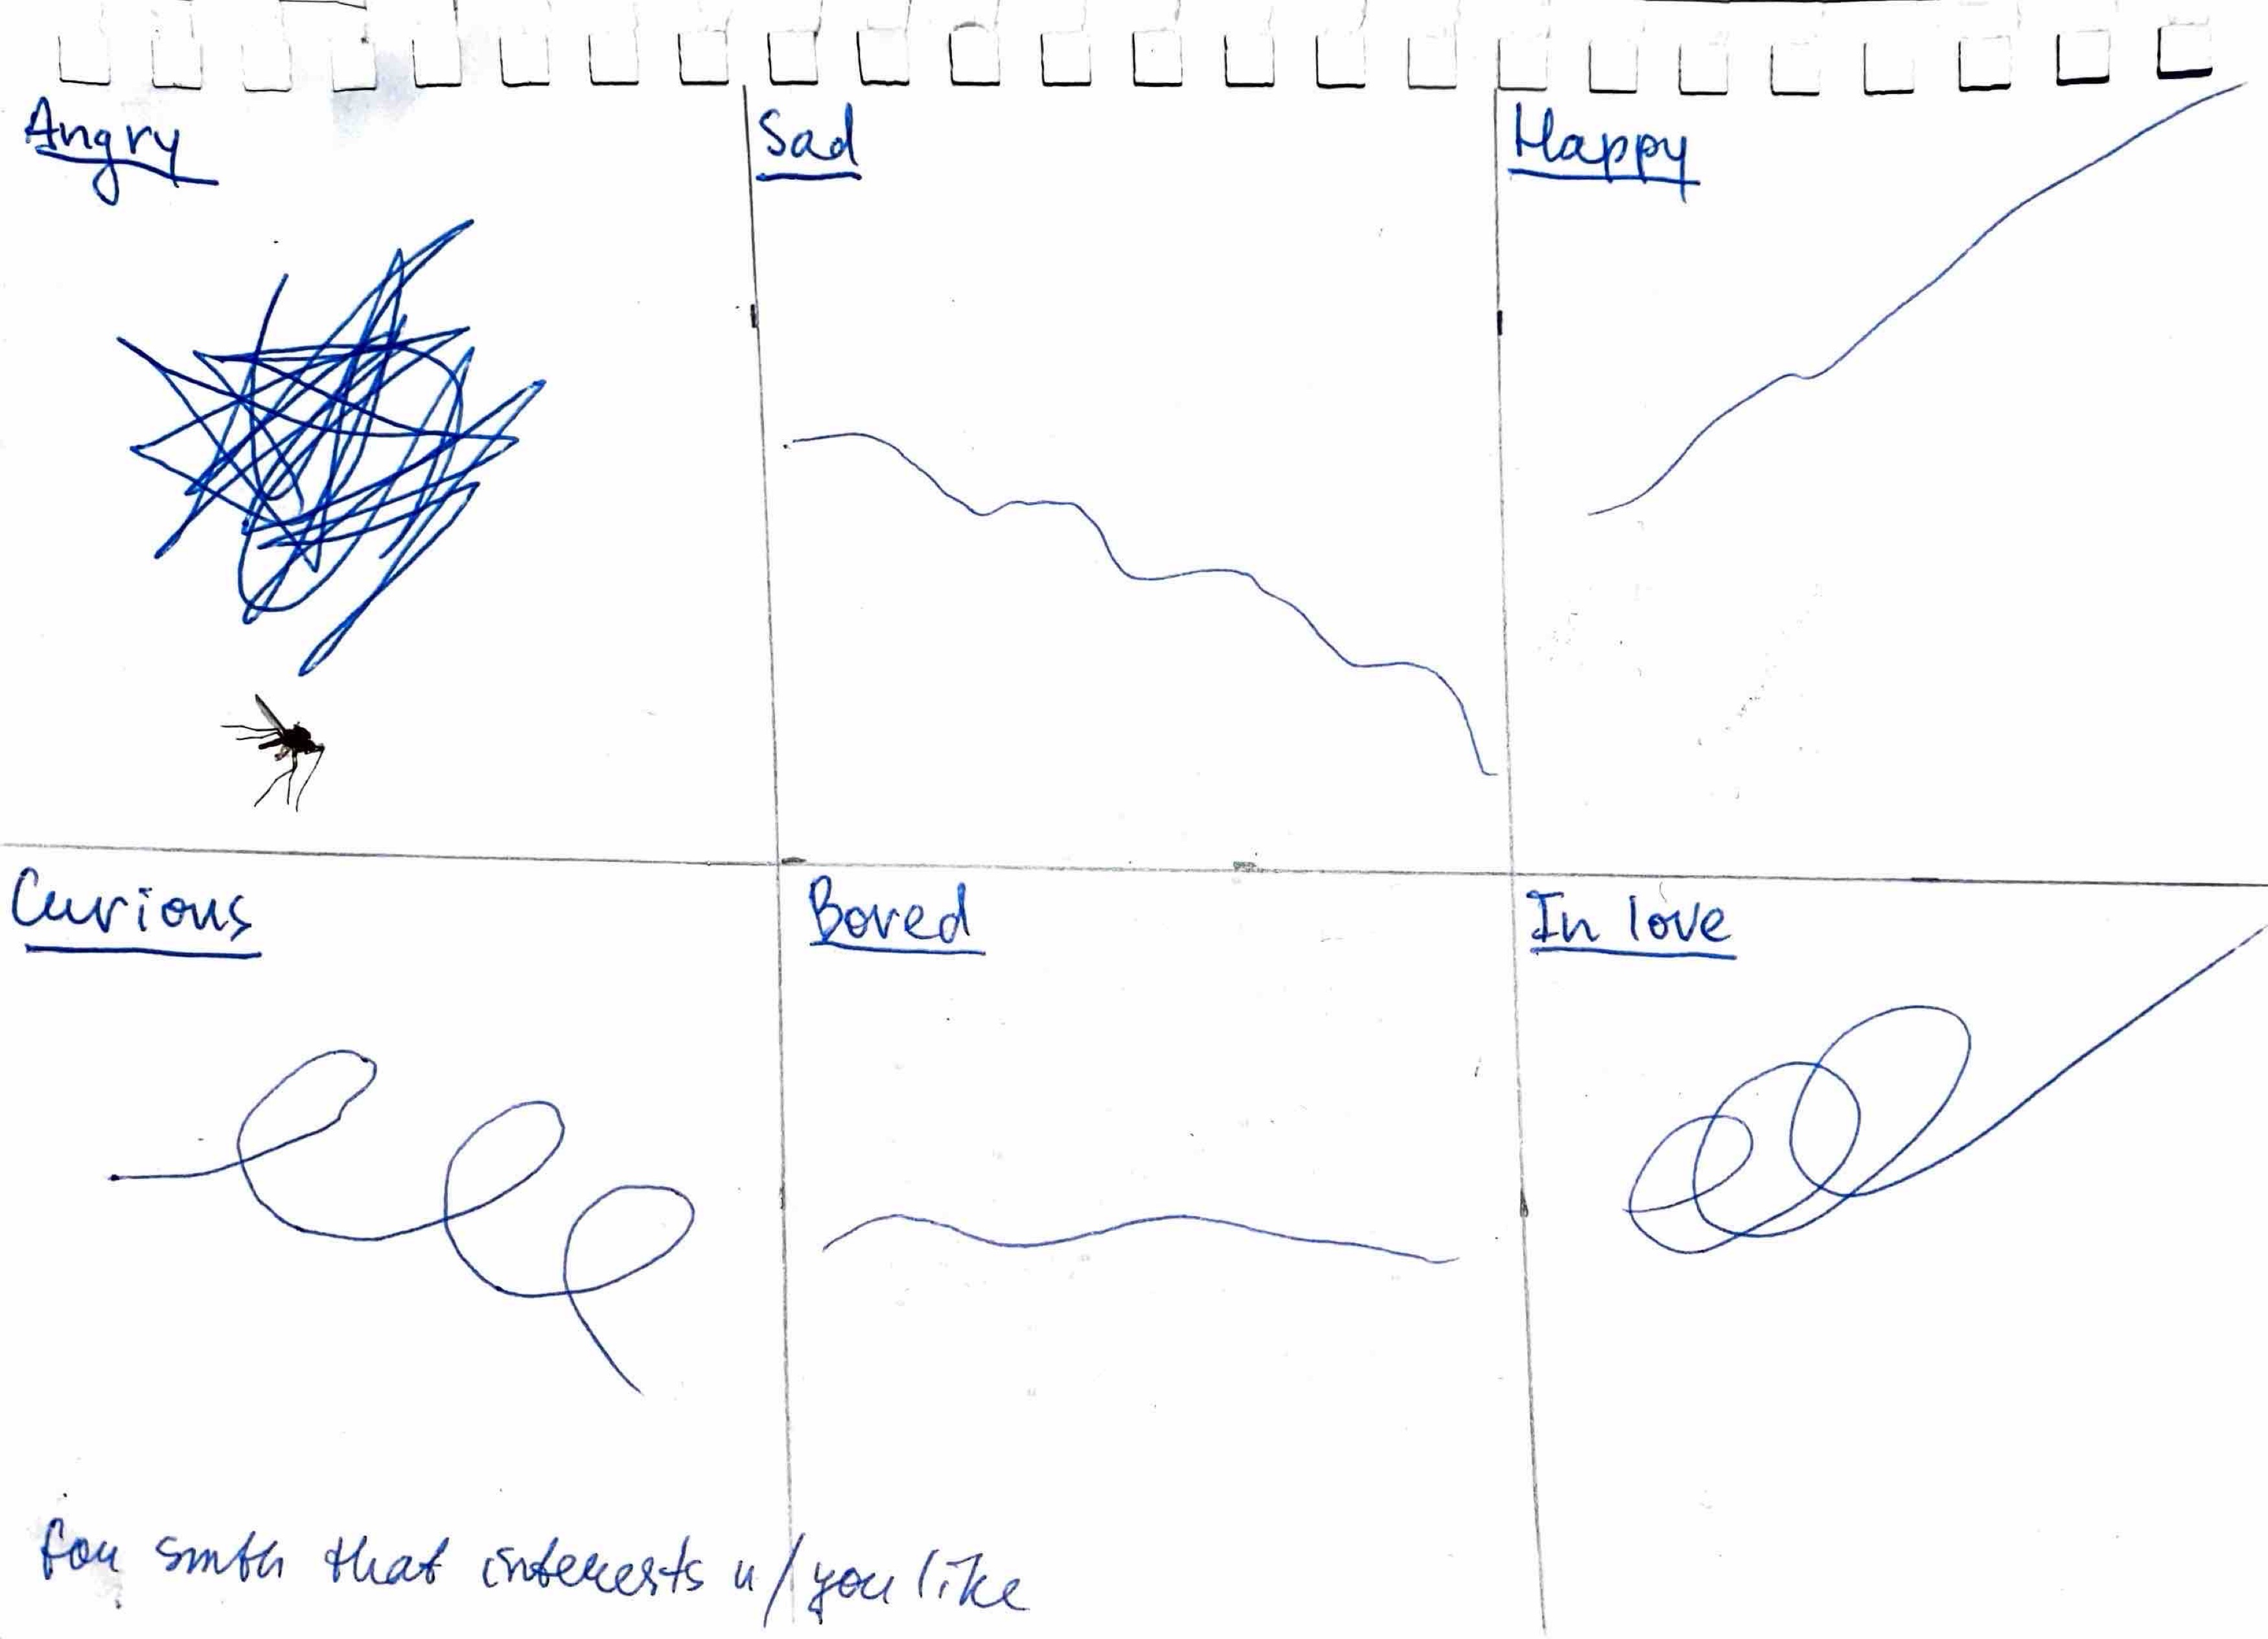 Angry
Sad
Happy
Curious
Bored
In love
for smth that interests u/you like